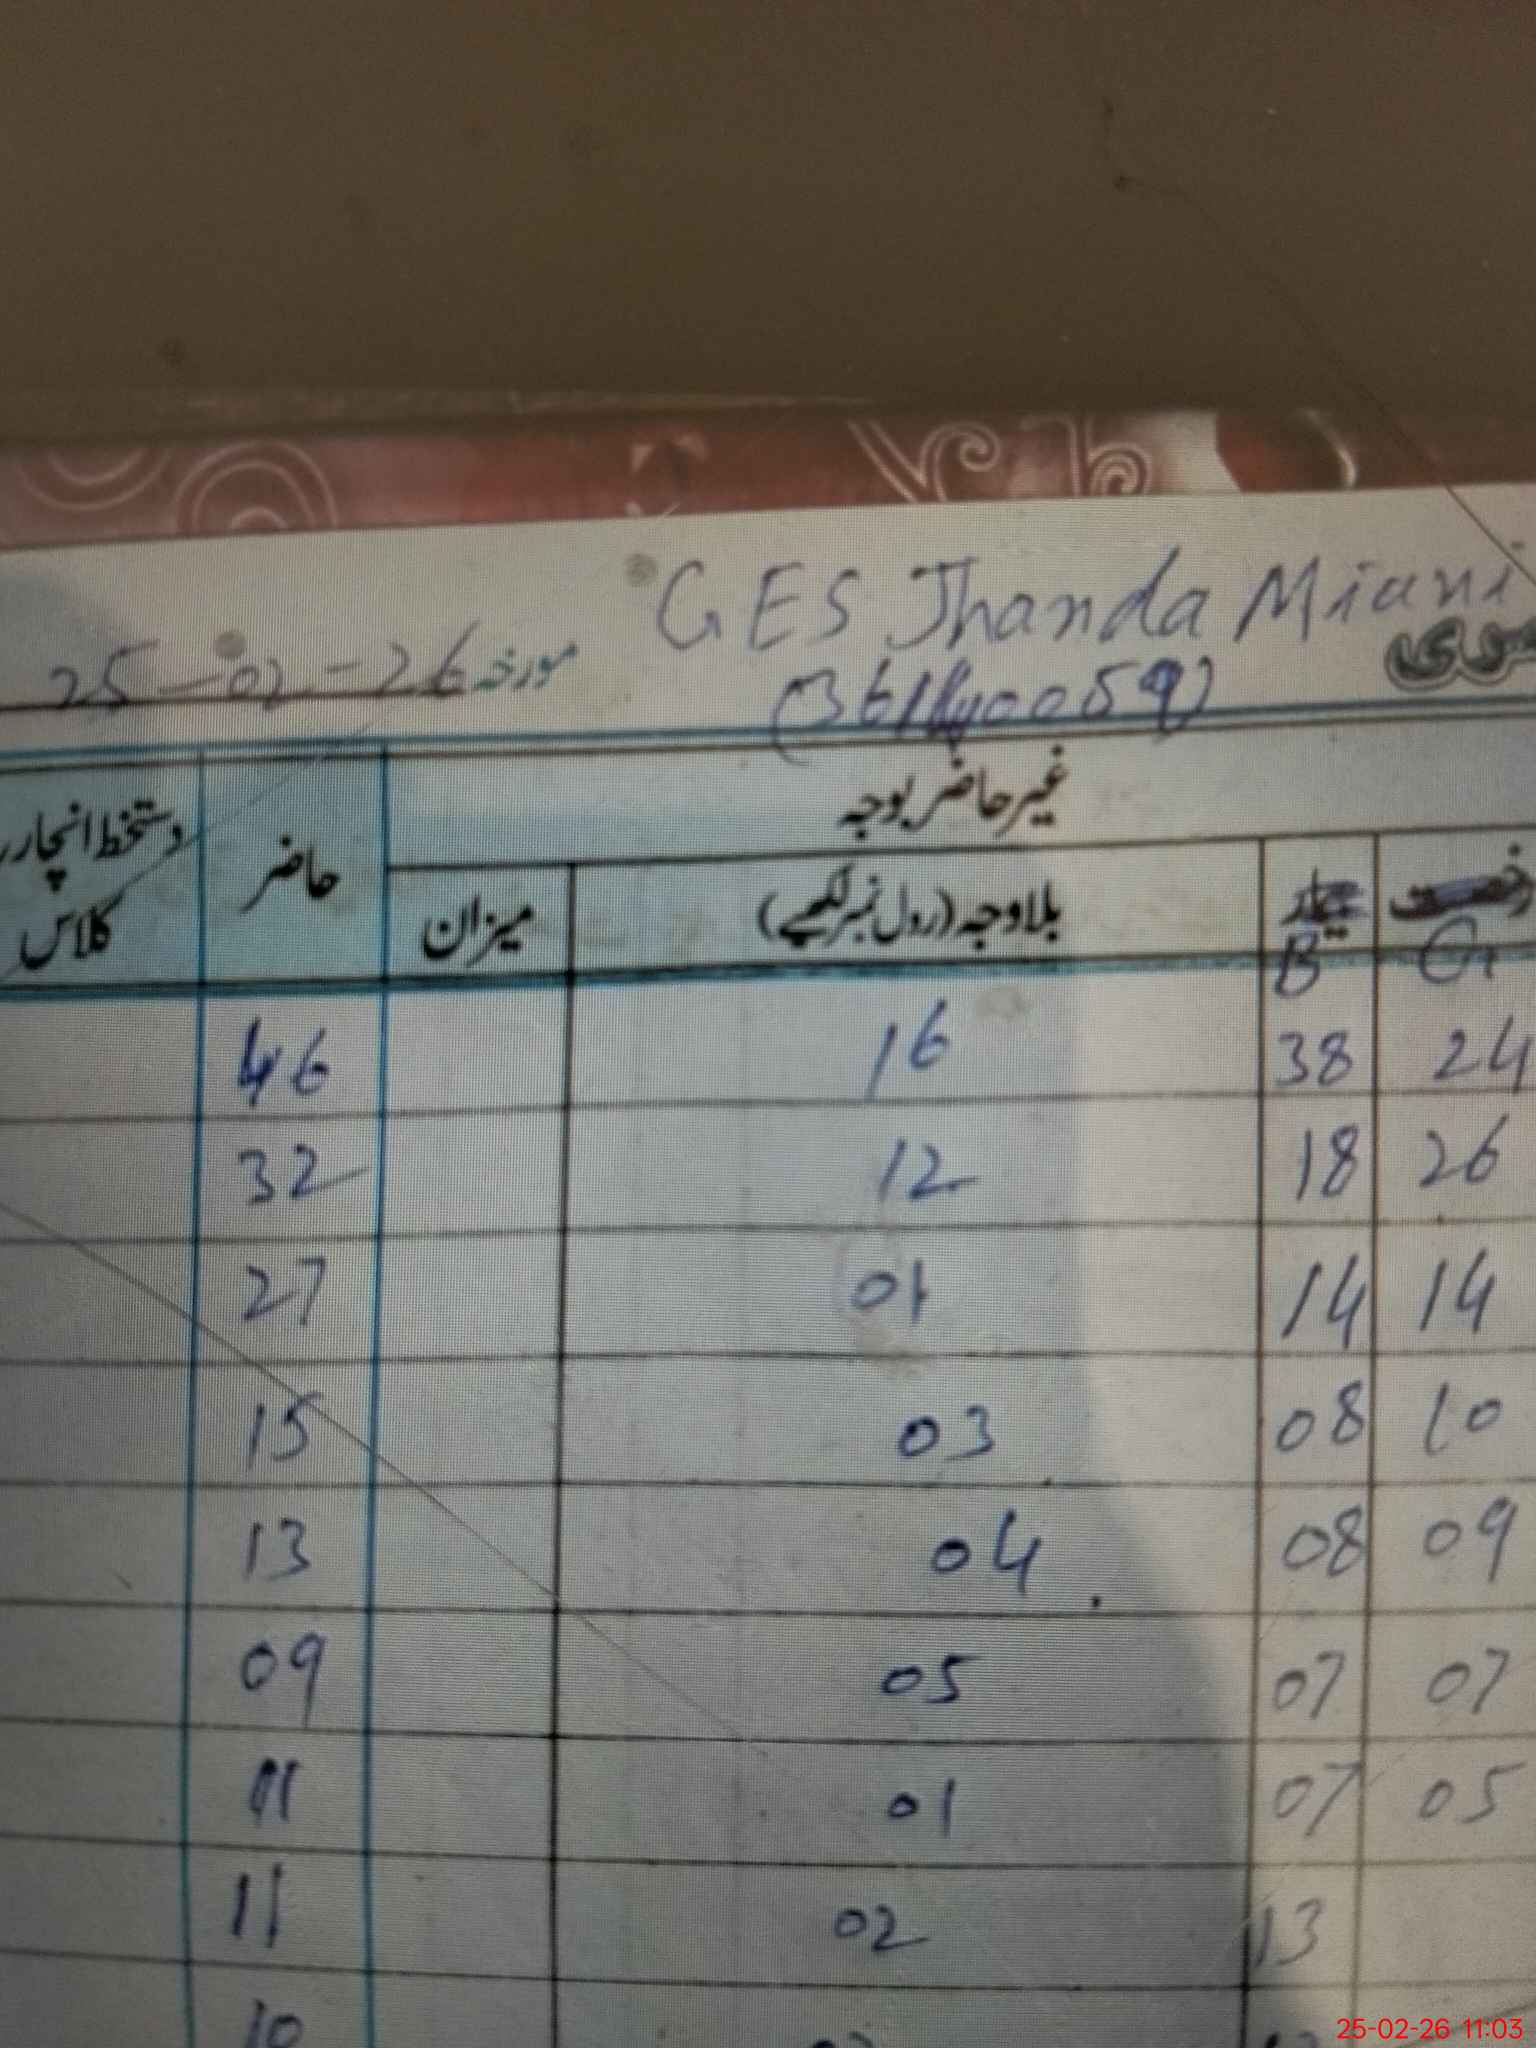 G E S Jhanda Miani
مورخہ 25-02-26
غیر حاضر بوجہ
رخصت بیمار بلاوجہ (رول نمبر لکھیے) میزان حاضر دستخط انچارج کلاس
G B
24 38 16 46
26 18 12 32
14 14 01 27
10 08 03 15
09 08 04 13
07 07 05 09
05 07 01 11
13 02 11
10
25-02-26 11:03